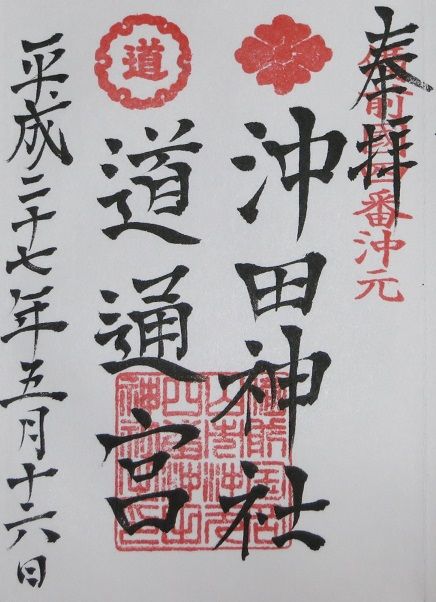 奉拝
前 四番沖元
沖田神社
道
道通宮
平成二十七年五月十六日